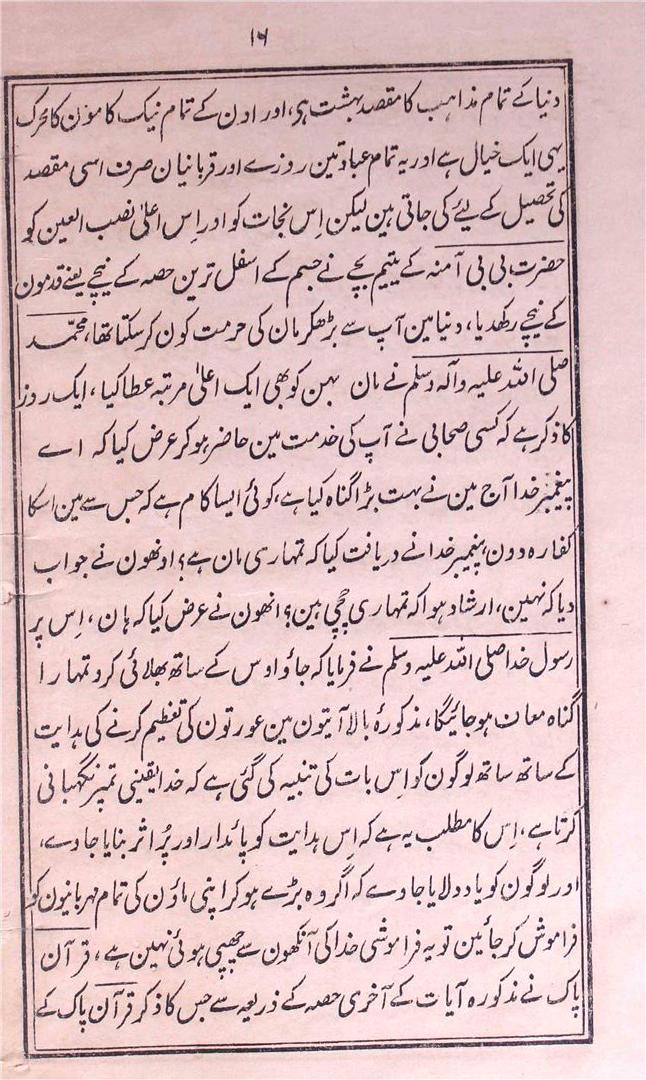 ۱۶
دنیا کے تمام مذاہب کا مقصد بہشت ہی، اور اون کے تمام نیک کامون کا محرک
یہی ایک خیال ہے اور یہ تمام عبادتین روزے اور قربانیان صرف اسی مقصد
کی تحصیل کے لیئے کی جاتی ہین لیکن اِس نجات کو اور اِس اعلیٰ نصب العین کو
حضرت بی بی آمنہ کے یتیم بچے نے جسم کے اسفل ترین حصہ کے نیچے یعنے قدمون
کے نیچے رکھدیا، دنیا مین آپ سے بڑھکر مان کی حرمت کون کر سکتا تھا، محمّد
صلی اللہ علیہ وآلہ وسلم نے مان بہن کو بھی ایک اعلیٰ مرتبہ عطا کیا، ایک روز
کا ذکر ہے کہ کسی صحابی نے آپ کی خدمت مین حاضر ہو کر عرض کیا کہ اے
پیغمبرِ خدا آج مین نے بہت بڑا گناہ کیا ہے، کوئی ایسا کام ہے کہ جس سے مین اسکا
کفارہ دون پیغمبر خدا نے دریافت کیا کہ تمہاری مان ہے؟ اونھون نے جواب
دیا کہ نہین، ارشاد ہوا کہ تمہاری چچی ہین؟ انھون نے عرض کیا کہ ہان، اِس پر
رسول خدا صلی اللہ علیہ وسلم نے فرمایا کہ جاؤ اوس کے ساتھ بھلائی کرو تمہارا
گناہ معاف ہو جائیگا، مذکورۂ بالا آیتون مین عورتون کی تعظیم کرنے کی ہدایت
کے ساتھ ساتھ لوگون کو اِس بات کی تنبیہ کی گئی ہے کہ خدا یقینی تمپر نگہبانی
کرتا ہے، اِس کا مطلب یہ ہے کہ اِس ہدایت کو پائدار اور پُر اثر بنایا جاوے،
اور لوگون کو یاد دلایا جاوے کہ اگر وہ بڑے ہو کر اپنی ماؤن کی تمام مہربانیون کو
فراموش کر جائین تو یہ فراموشی خدا کی آنکھون سے چھپی ہوئی نہین ہے، قرآن
پاک نے مذکورہ آیات کے آخری حصہ کے ذریعہ سے جس کا ذکر قرآن پاک کے